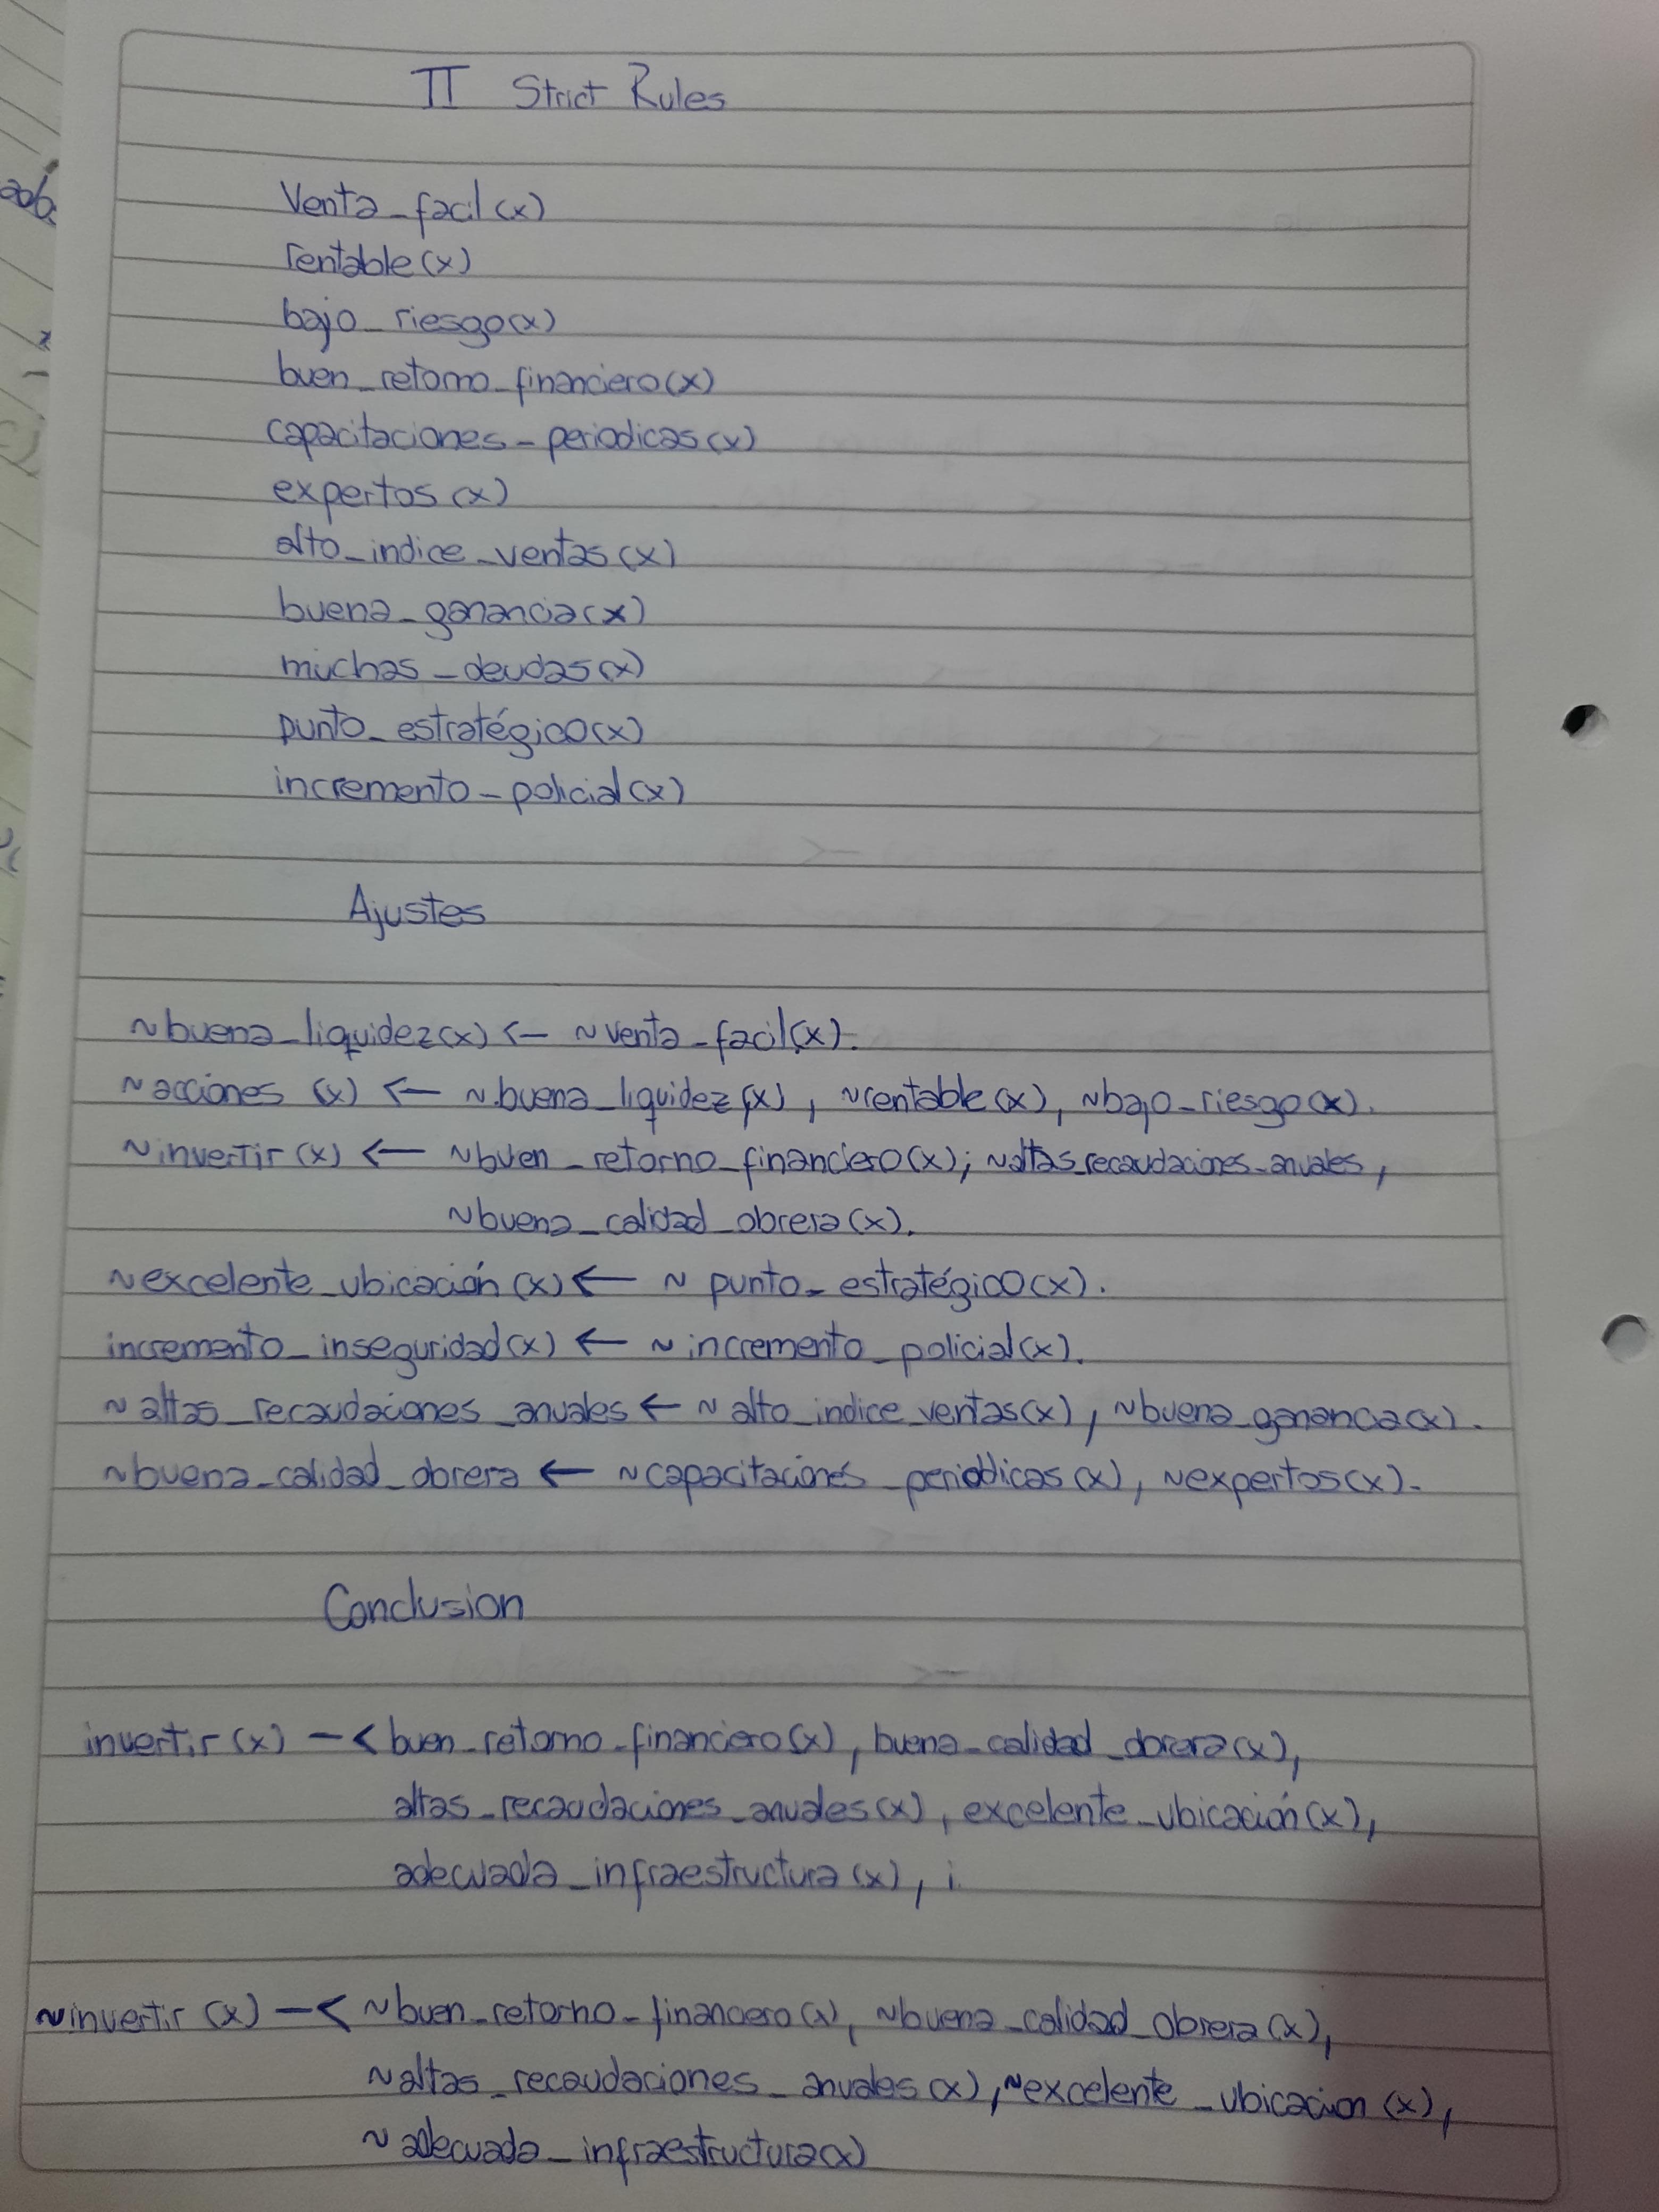 II Strict Rules
Venta_facil(x)
rentable(x)
bajo_riesgo(x)
buen_retorno_financiero(x)
capacitaciones_periodicas(x)
expertos(x)
alto_indice_ventas(x)
buena_ganancia(x)
muchas_deudas(x)
punto_estratégico(x)
incremento_policial(x)
Ajustes
~buena_liquidez(x) <- ~venta_facil(x).
~acciones (x) <- ~buena_liquidez(x), ~rentable(x), ~bajo_riesgo(x).
~invertir(x) <- ~buen_retorno_financiero(x); ~altas_recaudaciones_anuales,
~buena_calidad_obrera(x).
~excelente_ubicación(x) <- ~ punto_estratégico(x).
incremento_inseguridad(x) <- ~ incremento_policial(x).
~altas_recaudaciones_anuales <- ~ alto_indice_ventas(x), ~buena_ganancia(x).
~buena_calidad_obrera <- ~capacitaciones_periodicas(x), ~expertos(x).
Conclusion
invertir(x) -< buen_retorno_financiero(x), buena_calidad_obrera(x),
altas_recaudaciones_anuales(x), excelente_ubicación(x),
adecuada_infraestructura(x), i
~invertir(x) -< ~buen_retorno_financiero(x), ~buena_calidad_obrera(x),
~altas_recaudaciones_anuales(x), ~excelente_ubicacion(x),
~adecuada_infraestructura(x)